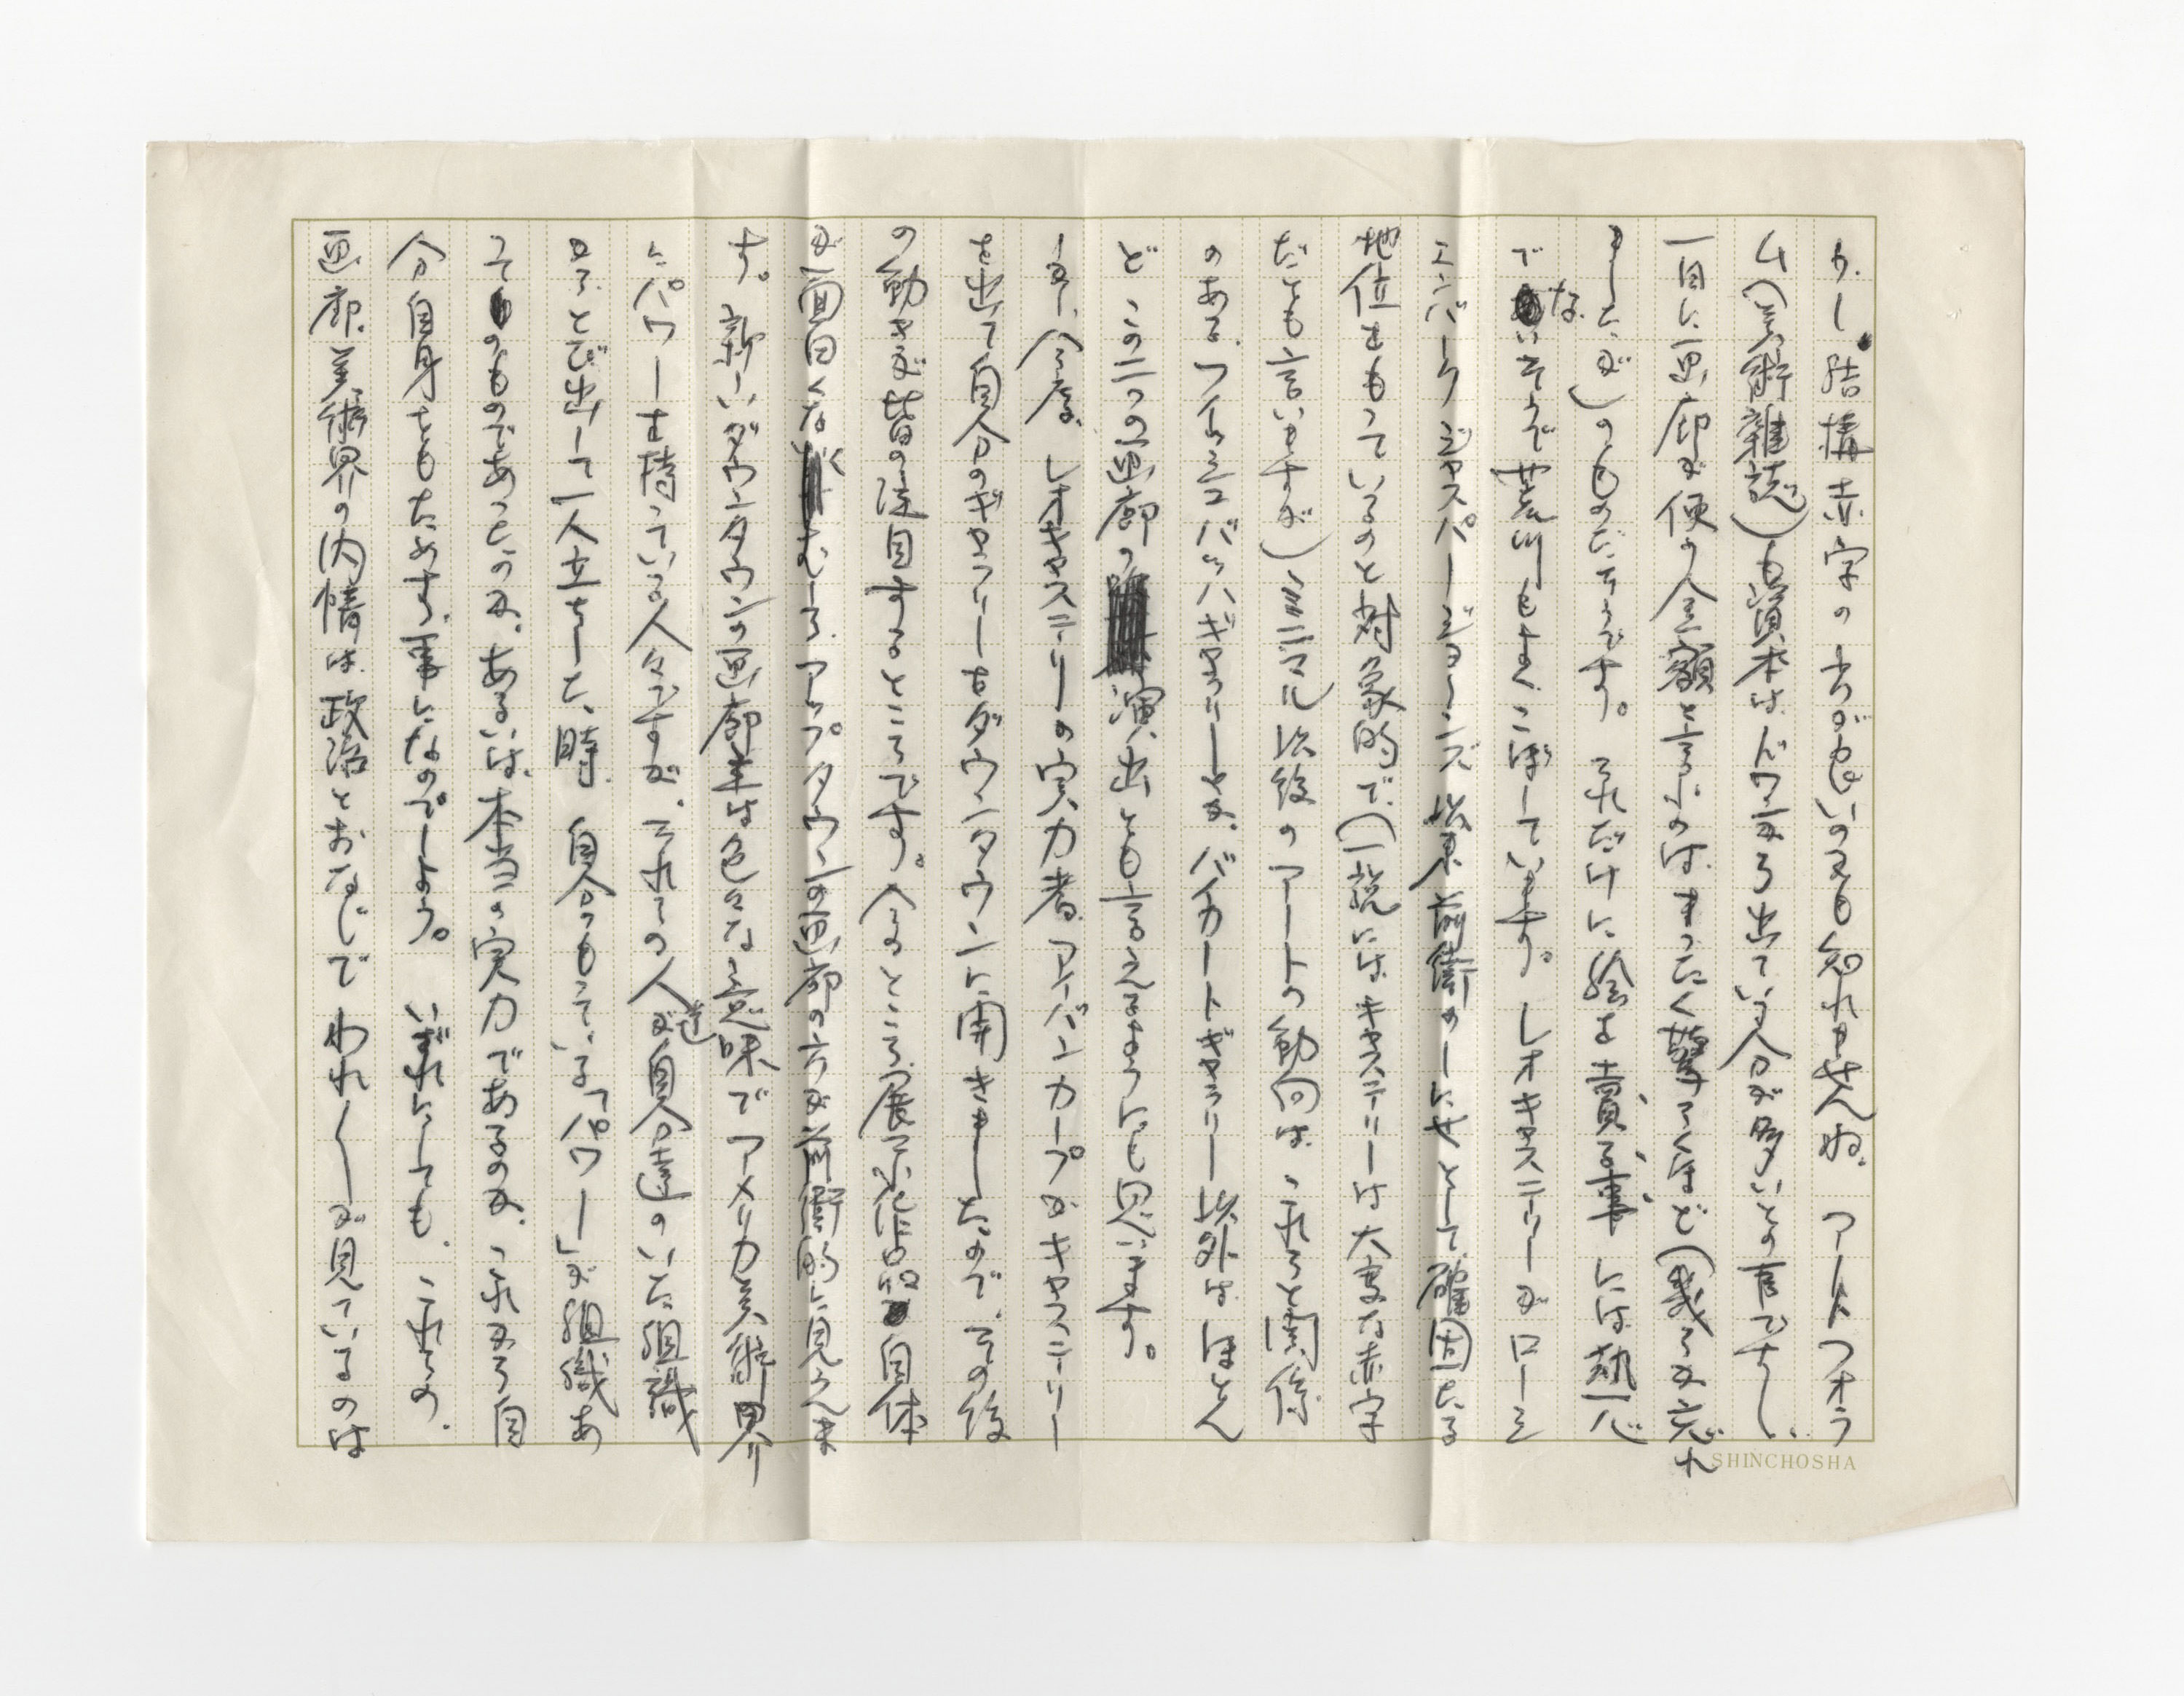 か、結構赤字の方が良いのかも知れませんね。アートフォラ
ム(美術雑誌)も資本はドワンから出ている分が多いとの事ですし、
一日に画廊が使う金額と言うのはまったく驚ろくほど(幾らか忘れ
ましたが)のものだそうです。それだけに絵は売る事には熱心
でないそうで荒川もよくこぼしています。レオキャステリーがローシ
ェンバーグジャスパージョーンズ以来前衛のしにせとして確固たる
地位をもっているのと対象的で、(一説にはキャステリーは大変な赤字
だとも言いますが)ミニマル以後のアートの動向は、これらと関係
のある、フィッシュバッハギャラリーとか、バイカートギャラリー以外は、ほとん
ど この二つの画廊の演出とも言えるようにも思います。
まあ、今度、レオキャステリーの実力者アイバンカープがキャステリー
を出て自分のギャラリーをダウンタウンに開きましたので、その後
の動きが皆の注目するところです。今のところ、展示作品自体
が面白くなくむしろ、アップタウンの画廊の方が前衛的に見えま
す。新しいダウンタウンの画廊主は色々な意味でアメリカ美術界
にパワーを持っている人々ですが、それらの人達が自分達のいた組識
からとび出して一人立ちした時、自分のもっている「パワー」が組織あ
ってのものであったのか、あるいは、本当の実力であるのか、これから自
分自身をもためす事になるのでしょう。いずれにしても、これらの、
画廊、美術界の内情は、政治とおなじで われ〳〵が見ているのは
SHINCHOSHA